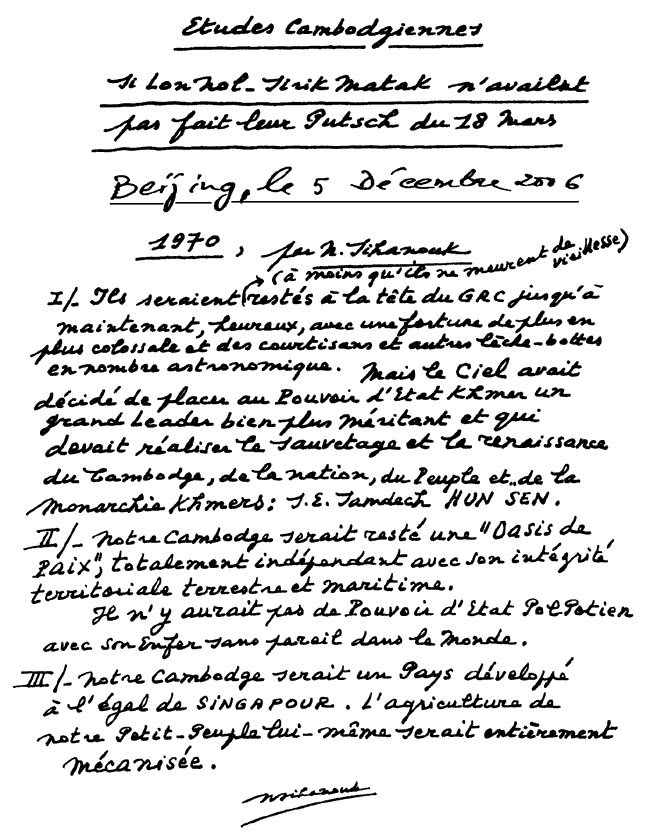 Etudes Cambodgiennes
Si Lon Nol - Sirik Matak n'avaient
pas fait leur Putsch du 18 Mars
Beijing, le 5 Décembre 2006
1970, par N. Sihanouk
(à moins qu'ils ne meurent de vieillesse)
I/- Ils seraient restés à la tête du GRC jusqu'à
maintenant, heureux, avec une fortune de plus en
plus colossale et des courtisans et autres lèche-bottes
en nombre astronomique. Mais le Ciel avait
décidé de placer au Pouvoir d'Etat Khmer un
grand Leader bien plus méritant et qui
devait réaliser le sauvetage et la renaissance
du Cambodge, de la nation, du Peuple et de la
Monarchie Khmers : S.E. Samdech HUN SEN.
II/- Notre Cambodge serait resté une "Oasis de
PAIX", totalement indépendant avec son intégrité
territoriale terrestre et maritime.
Il n'y aurait pas de Pouvoir d'Etat Pol Potien
avec son Enfer sans pareil dans le Monde.
III/- Notre Cambodge serait un Pays développé
à l'égal de SINGAPOUR. L'agriculture de
notre Petit-Peuple lui-même serait entièrement
mécanisée.
N Sihanouk